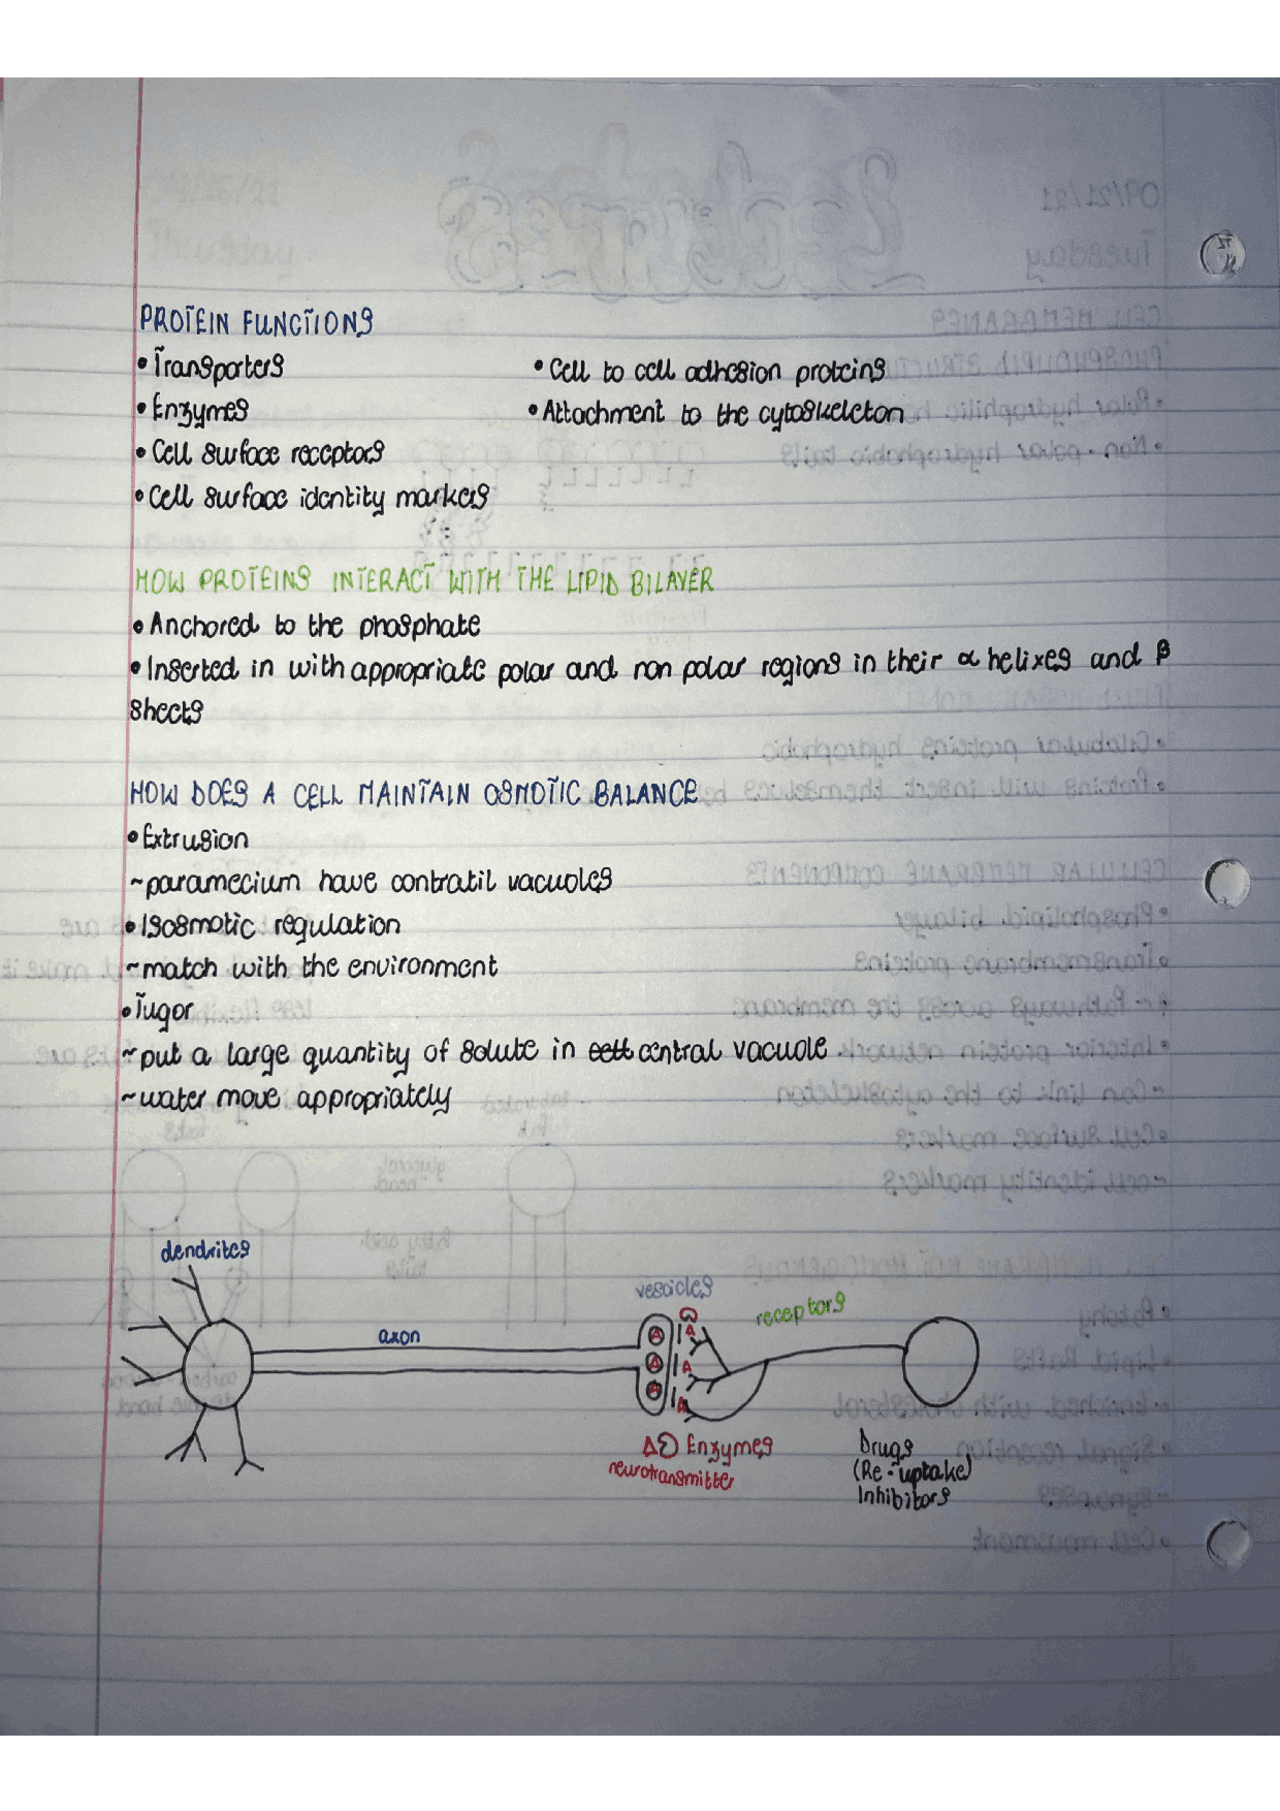 PROTEIN FUNCTIONS
• Transporters
• Cell to cell adhesion proteins
• Enzymes
• Attachment to the cytoskeleton
• Cell surface receptors
• Cell surface identity markers
HOW PROTEINS INTERACT WITH THE LIPID BILAYER
• Anchored to the phosphate
• Inserted in with appropriate polar and non polar regions in their α helixes and β
sheets
HOW DOES A CELL MAINTAIN OSMOTIC BALANCE
• Extrusion
~ paramecium have contratil vacuoles
• Isosmotic regulation
~ match with the environment
• Tugor
~ put a large quantity of solute in cell central vacuole
~ water move appropriately
dendrites
axon
vescicles
receptors
Enzymes
neurotransmitter
Drugs
(Re-uptake)
Inhibitors